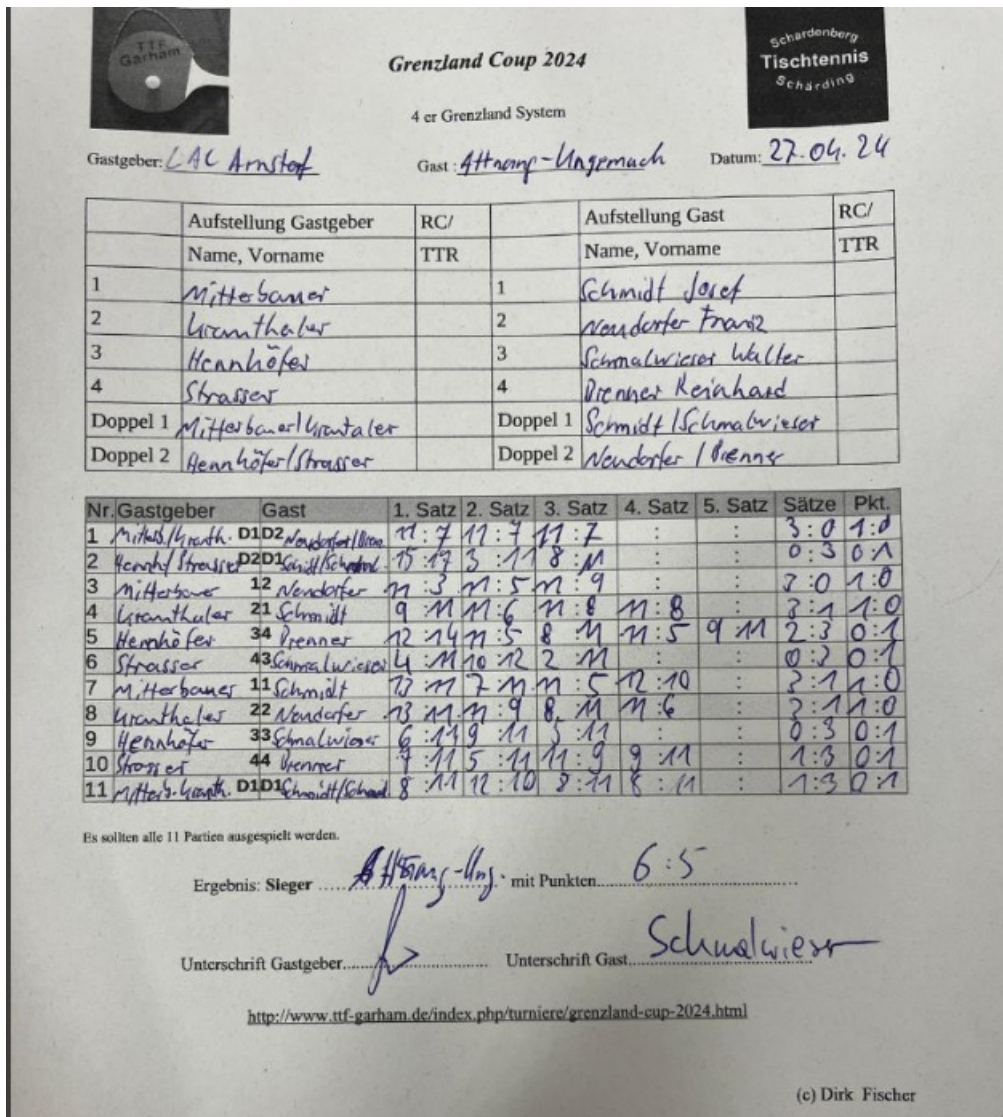 TTF
Garham
Grenzland Coup 2024
Schardenberg
Tischtennis
Schärding
4 er Grenzland System
Gastgeber: LAC Arnstorf Gast : Attnang-Ungemach Datum: 27.04.24
Aufstellung Gastgeber RC/ Aufstellung Gast RC/
Name, Vorname TTR Name, Vorname TTR
1 Mitterbauer 1 Schmidt Josef
2 Kranthaler 2 Neudorfer Franz
3 Hennhöfer 3 Schmalwieser Walter
4 Strasser 4 Brenner Reinhard
Doppel 1 Mitterbauer/Krantaler Doppel 1 Schmidt/Schmalwieser
Doppel 2 Hennhöfer/Strasser Doppel 2 Neudorfer/Brenner
Nr. Gastgeber Gast 1. Satz 2. Satz 3. Satz 4. Satz 5. Satz Sätze Pkt.
1 Mitterb./Kranth. D1 D2 11:7 11:7 11:7 : : 3:0 1:0
2 Hennh/Strasser D2 D1 15:17 3:11 8:11 : : 0:3 0:1
3 Mitterbauer 1 2 Neudorfer 11:3 11:5 11:9 : : 3:0 1:0
4 Kranthaler 2 1 Schmidt 9:11 11:6 11:8 11:8 : 3:1 1:0
5 Hennhöfer 3 4 Brenner 12:14 11:5 8:11 11:5 9:11 2:3 0:1
6 Strasser 4 3 Schmalwieser 4:11 10:12 2:11 : : 0:3 0:1
7 Mitterbauer 1 1 Schmidt 13:11 7:11 11:5 12:10 : 3:1 1:0
8 Kranthaler 2 2 Neudorfer 13:11 11:9 8:11 11:6 : 3:1 1:0
9 Hennhöfer 3 3 Schmalwieser 6:11 9:11 :11 : : 0:3 0:1
10 Strasser 4 4 Brenner :11 5:11 11:9 9:11 : 1:3 0:1
11 Mitterb.-Kranth. D1 D1 8:11 12:10 8:11 8:11 : 1:3 0:1
Es sollten alle 11 Partien ausgespielt werden.
Ergebnis: Sieger Attnang-Ung. mit Punkten 6:5
Unterschrift Gastgeber Unterschrift Gast Schmalwieser
http://www.ttf-garham.de/index.php/turniere/grenzland-cup-2024.html
(c) Dirk Fischer